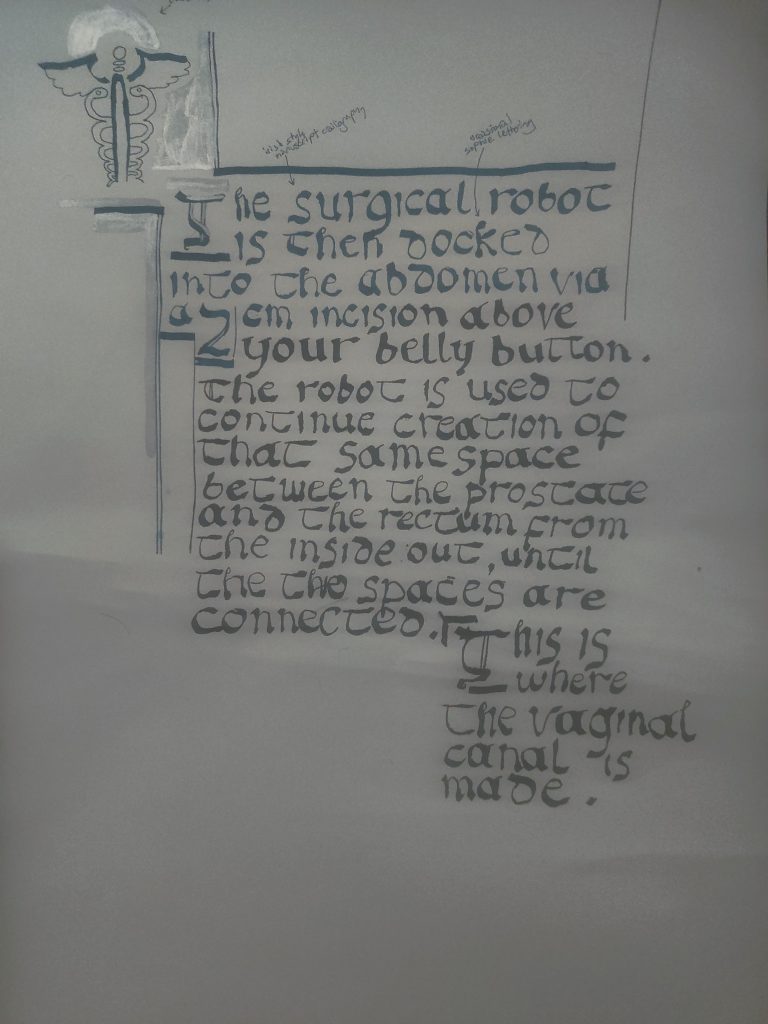 Irish style
manuscript caligraphy
occasional
sapphic lettering
The surgical robot
is then docked
into the abdomen via
a 2cm incision above
your belly button.
the robot is used to
continue creation of
that same space
between the prostate
and the rectum from
the inside out, until
the two spaces are
connected.
This is
where
the vaginal
canal is
made.